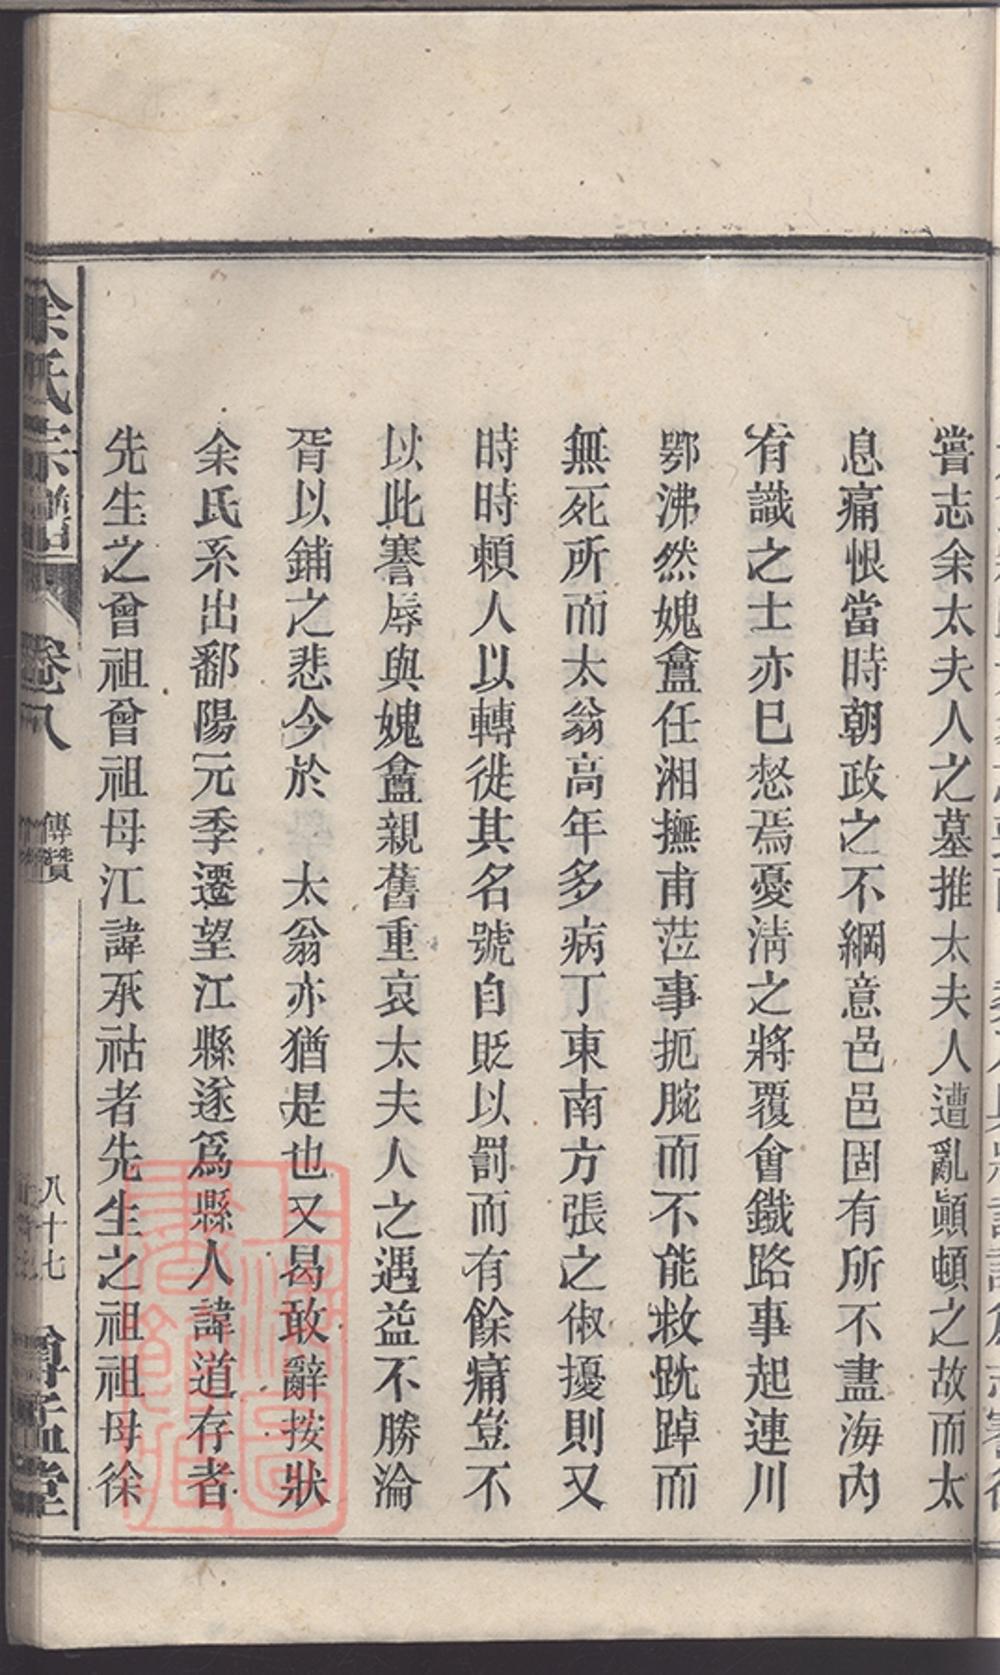 嘗志余太夫人之墓推太夫人遭亂顚頓之故而太
息痛恨當時朝政之不綱意邑邑固有所不盡海內
有識之士亦已愁焉憂淸之將覆會鐵路事起連川
鄂沸然媿盦任湘撫甫蒞事扼腕而不能救跣踔而
無死所而太翁高年多病丁東南方張之俶擾則又
時時賴人以轉徙其名號自貶以罰而有餘痛豈不
以此謇辱與媿盦親舊重哀太夫人之遇益不勝淪
胥以鋪之悲今於　太翁亦猶是也又曷敢辭按狀
余氏系出鄱陽元季遷望江縣遂爲縣人諱道存者
先生之曾祖曾祖母江諱承祜者先生之祖祖母徐
余氏宗譜
卷八
傳贊
八十七